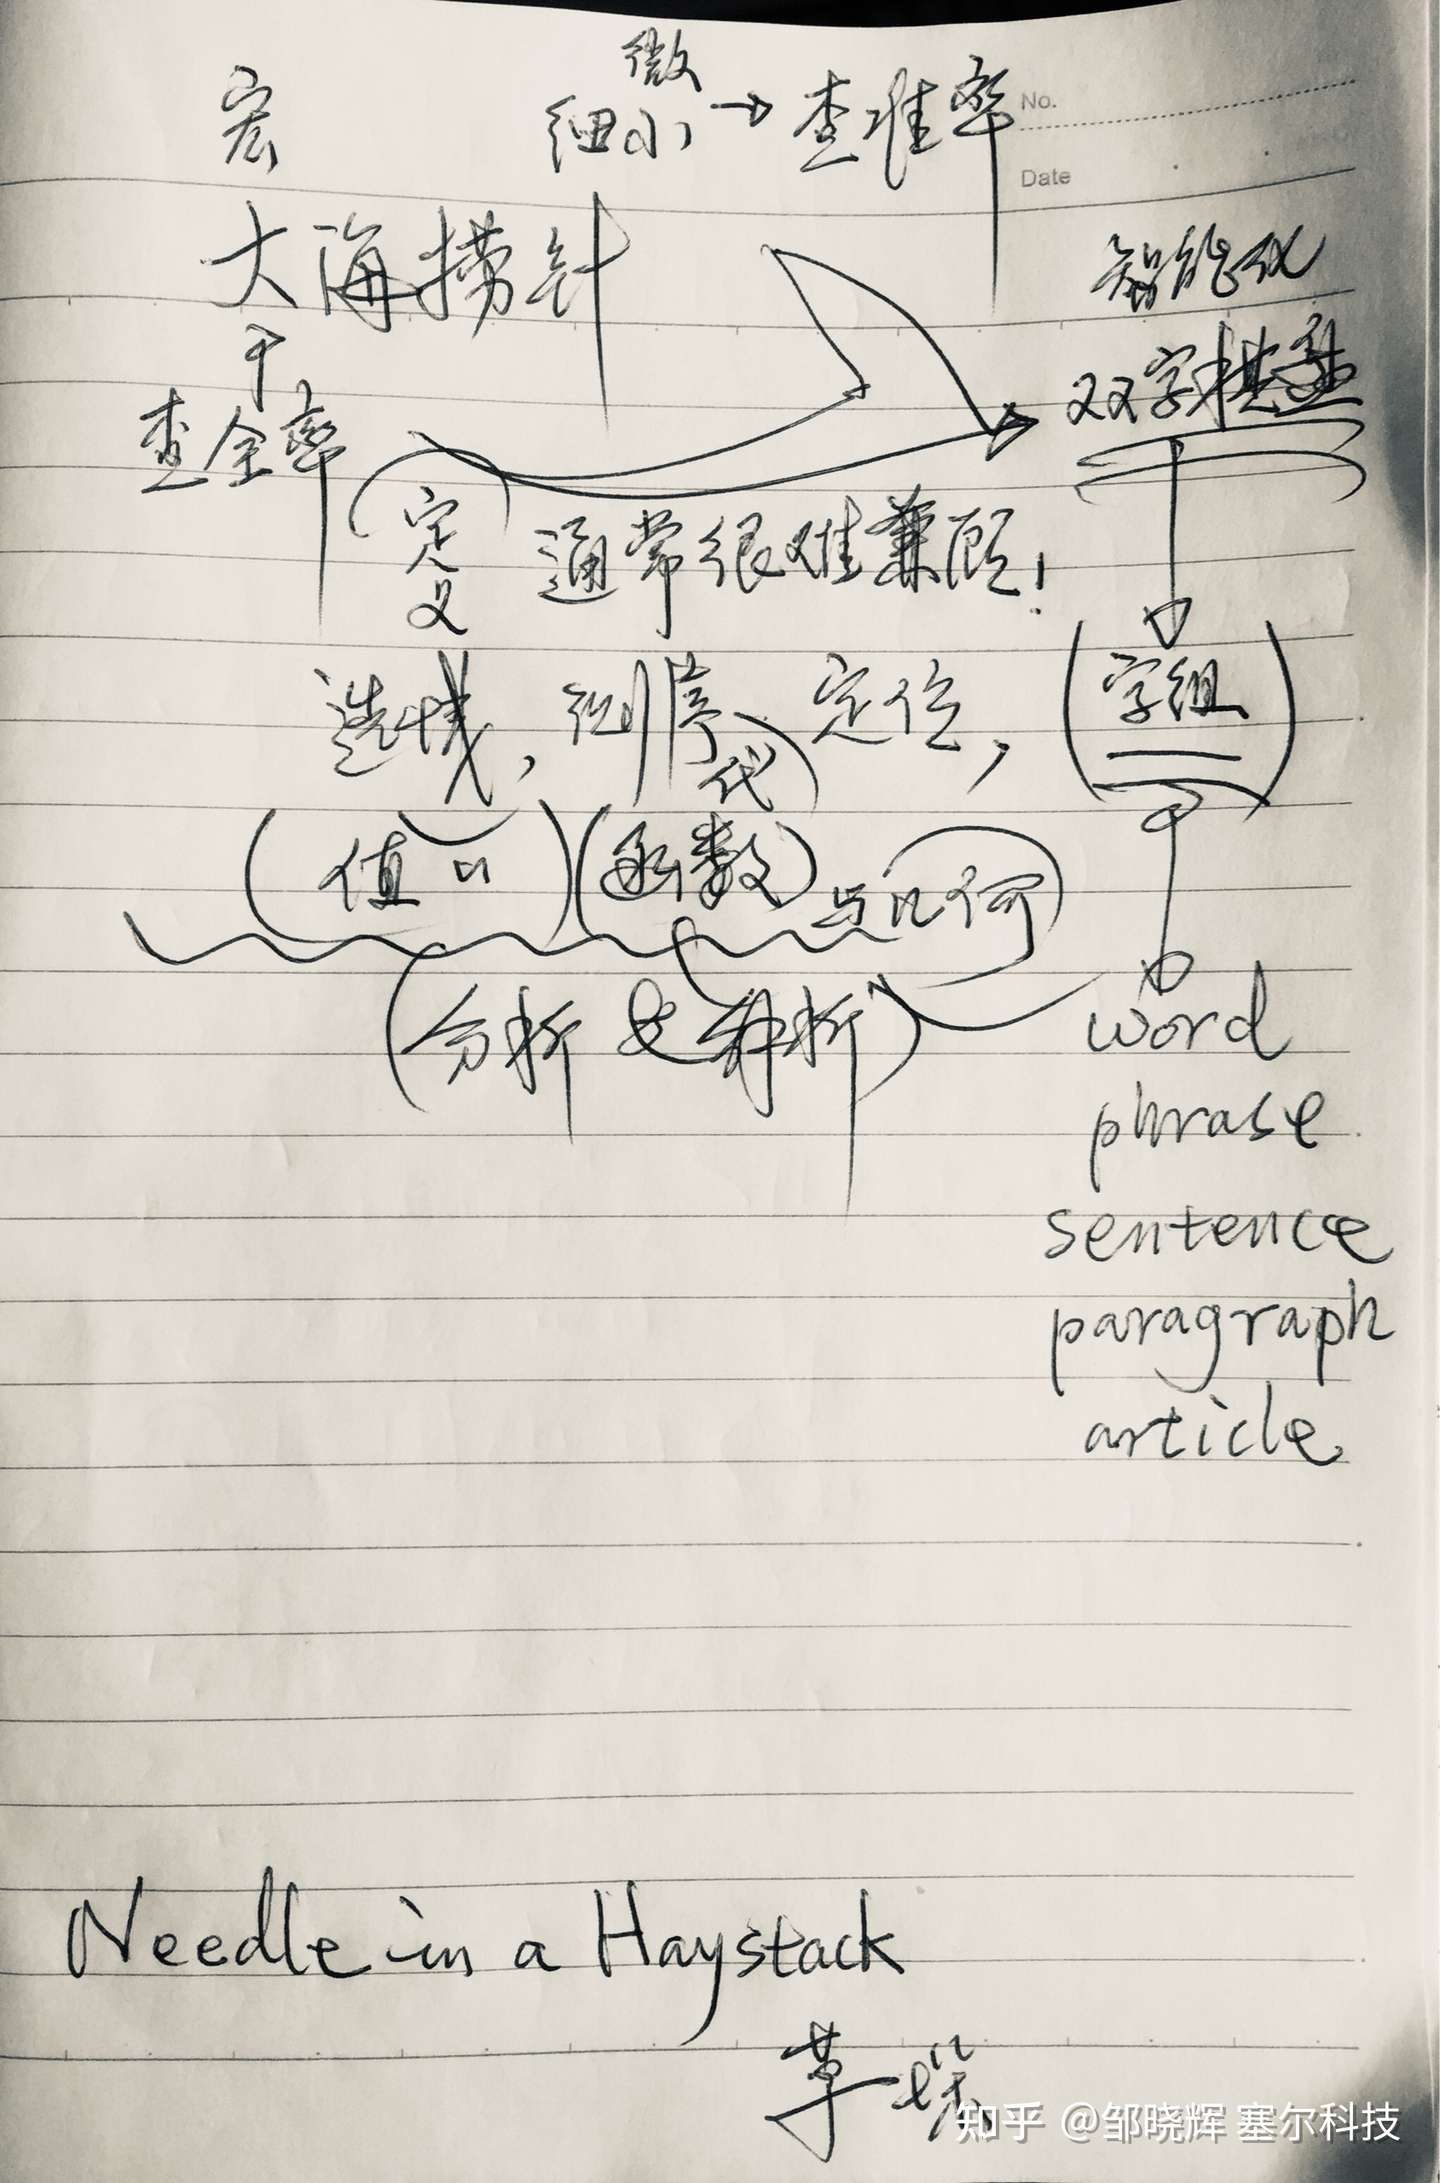 宏
微
细小 → 查准率
No.
Date
大海捞针
智能化
双字棋盘
查全率
定义
通常很难兼顾!
选域, 列序, 定位,
字组
代
(值域) (函数) 与几何
(分析 & 解析)
word
phrase
sentence
paragraph
article
Needle in a Haystack
草垛
知乎 @邹晓辉 塞尔科技